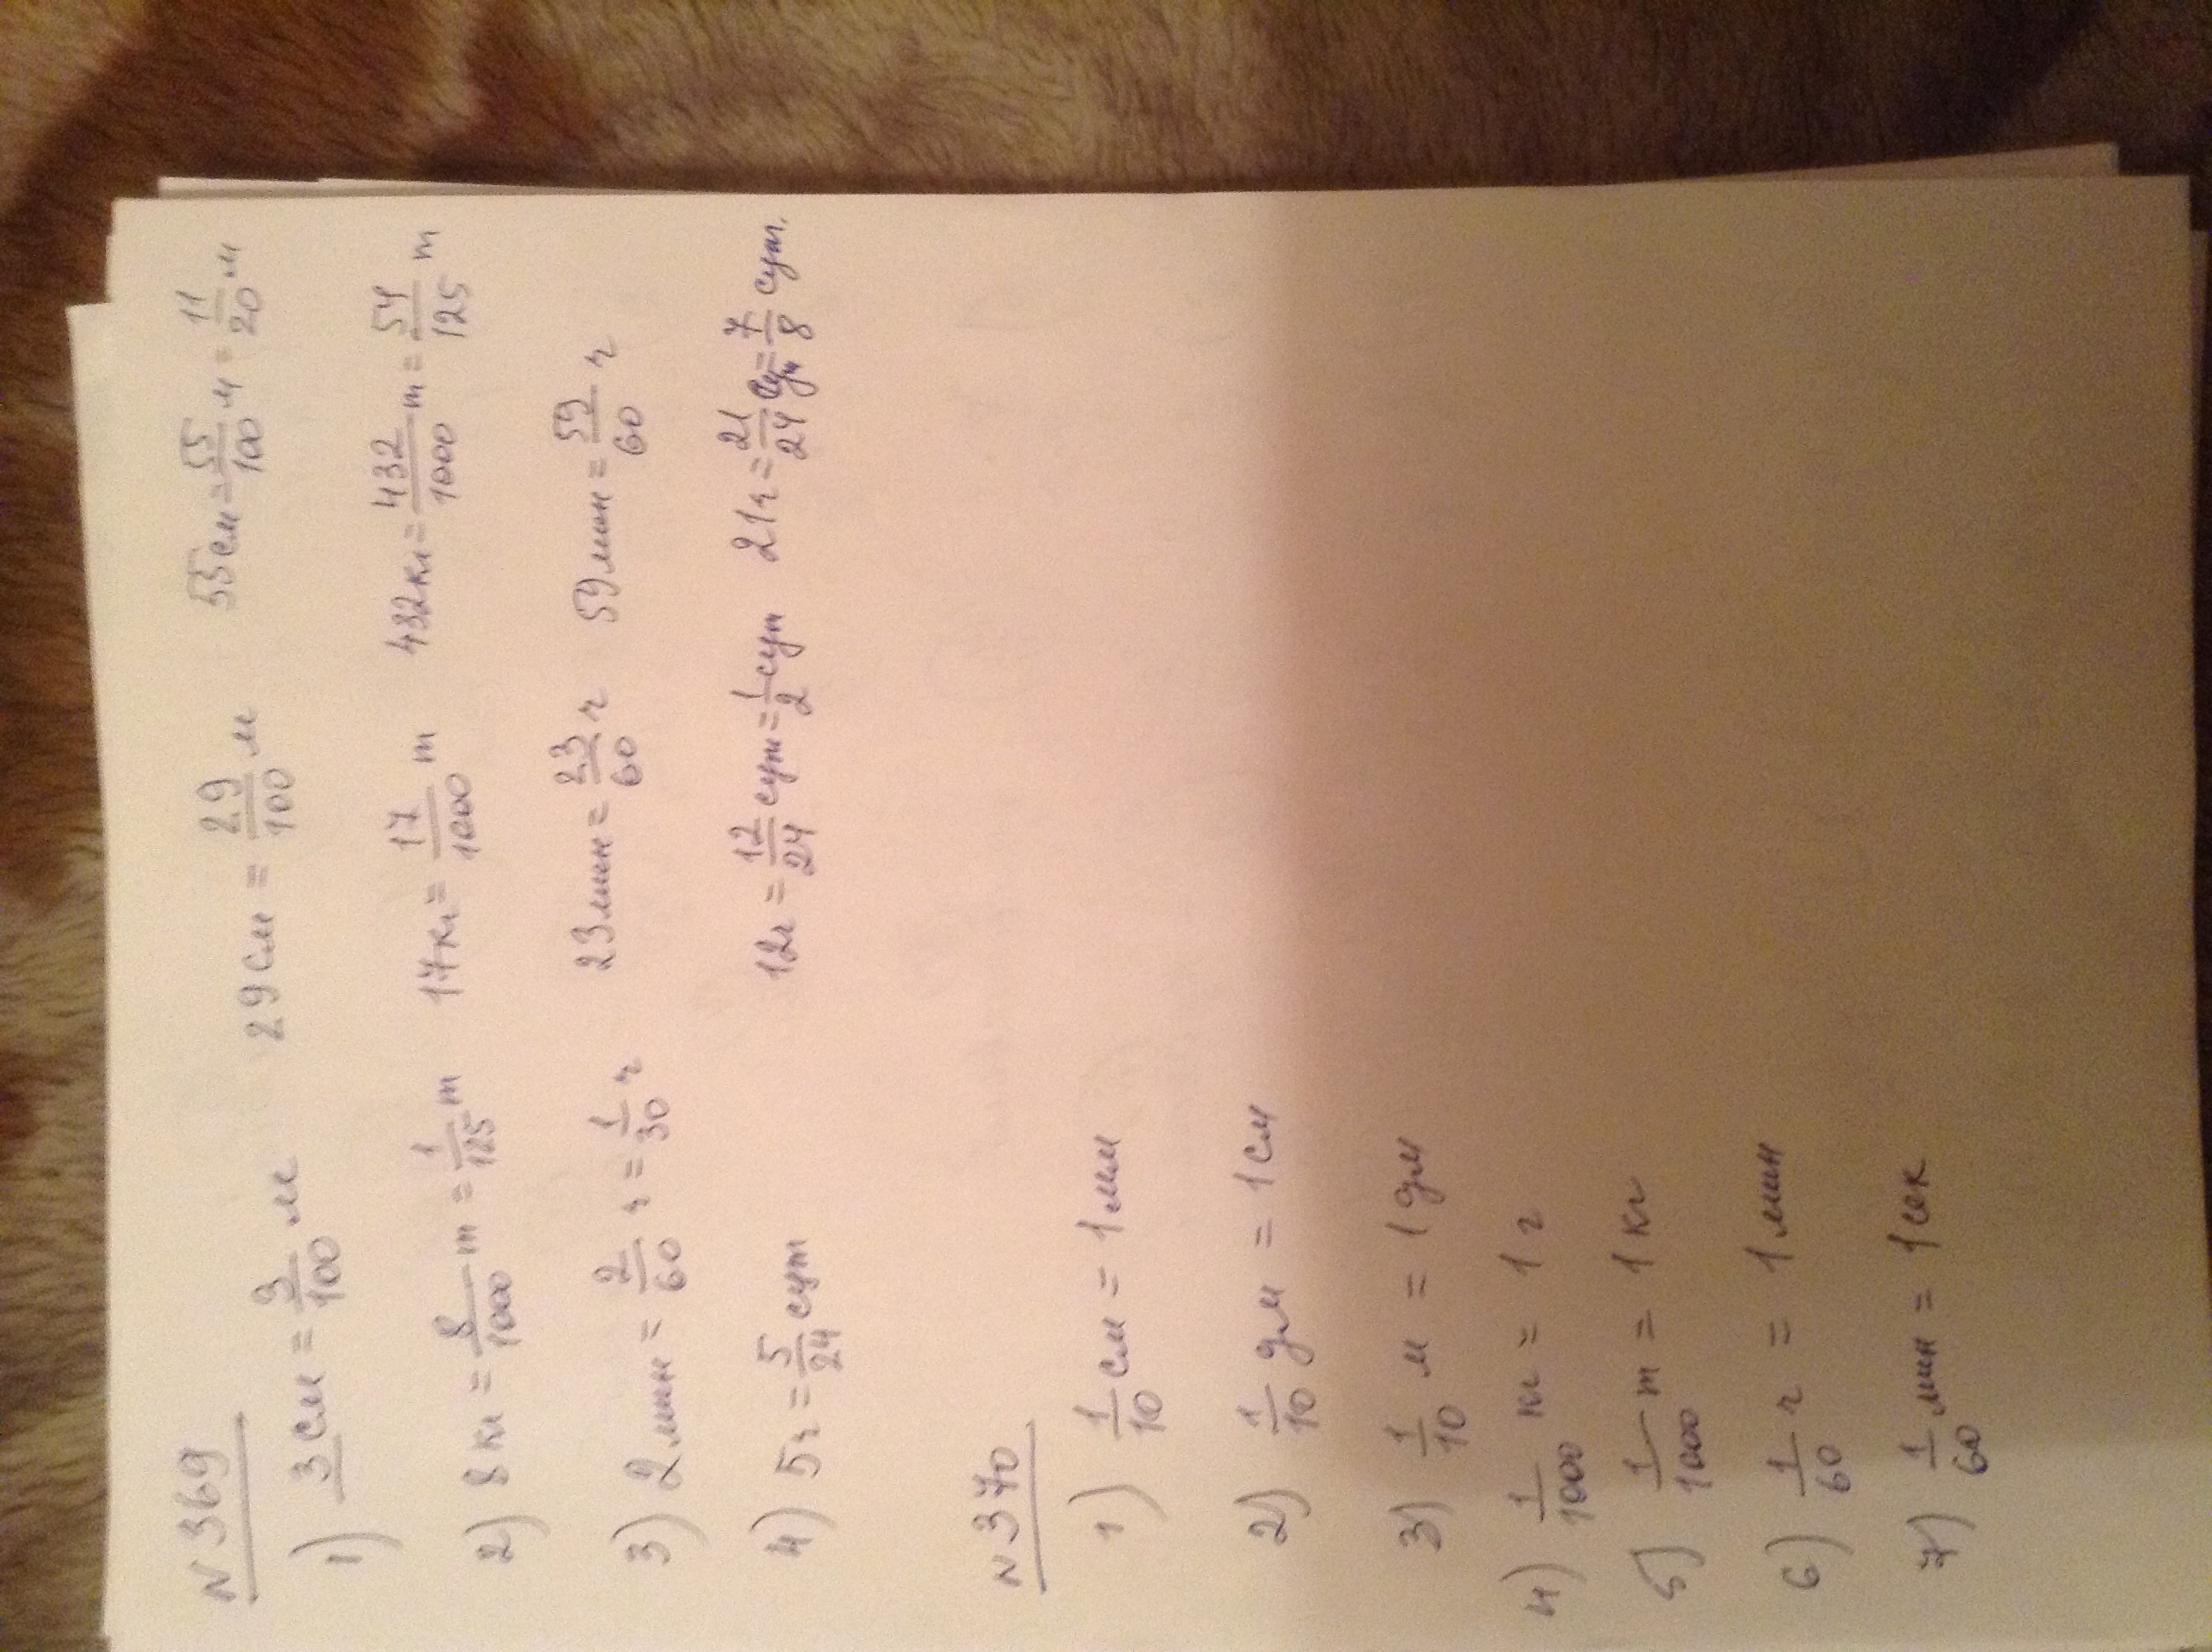 N 369
1) 3 см = 3/100 м 29 см = 29/100 м 55 см = 55/100 м = 11/20 м
2) 8 кг = 8/1000 т = 1/125 т 17 кг = 17/1000 т 432 кг = 432/1000 т = 54/125 т
3) 2 мин = 2/60 ч = 1/30 ч 23 мин = 23/60 ч 59 мин = 59/60 ч
4) 5 ч = 5/24 сут 12 ч = 12/24 сут = 1/2 сут 21 ч = 21/24 = 7/8 сут.
N 370
1) 1/10 см = 1 мм
2) 1/10 дм = 1 см
3) 1/10 м = 1 дм
4) 1/1000 кг = 1 г
5) 1/1000 т = 1 кг
6) 1/60 ч = 1 мин
7) 1/60 мин = 1 сек